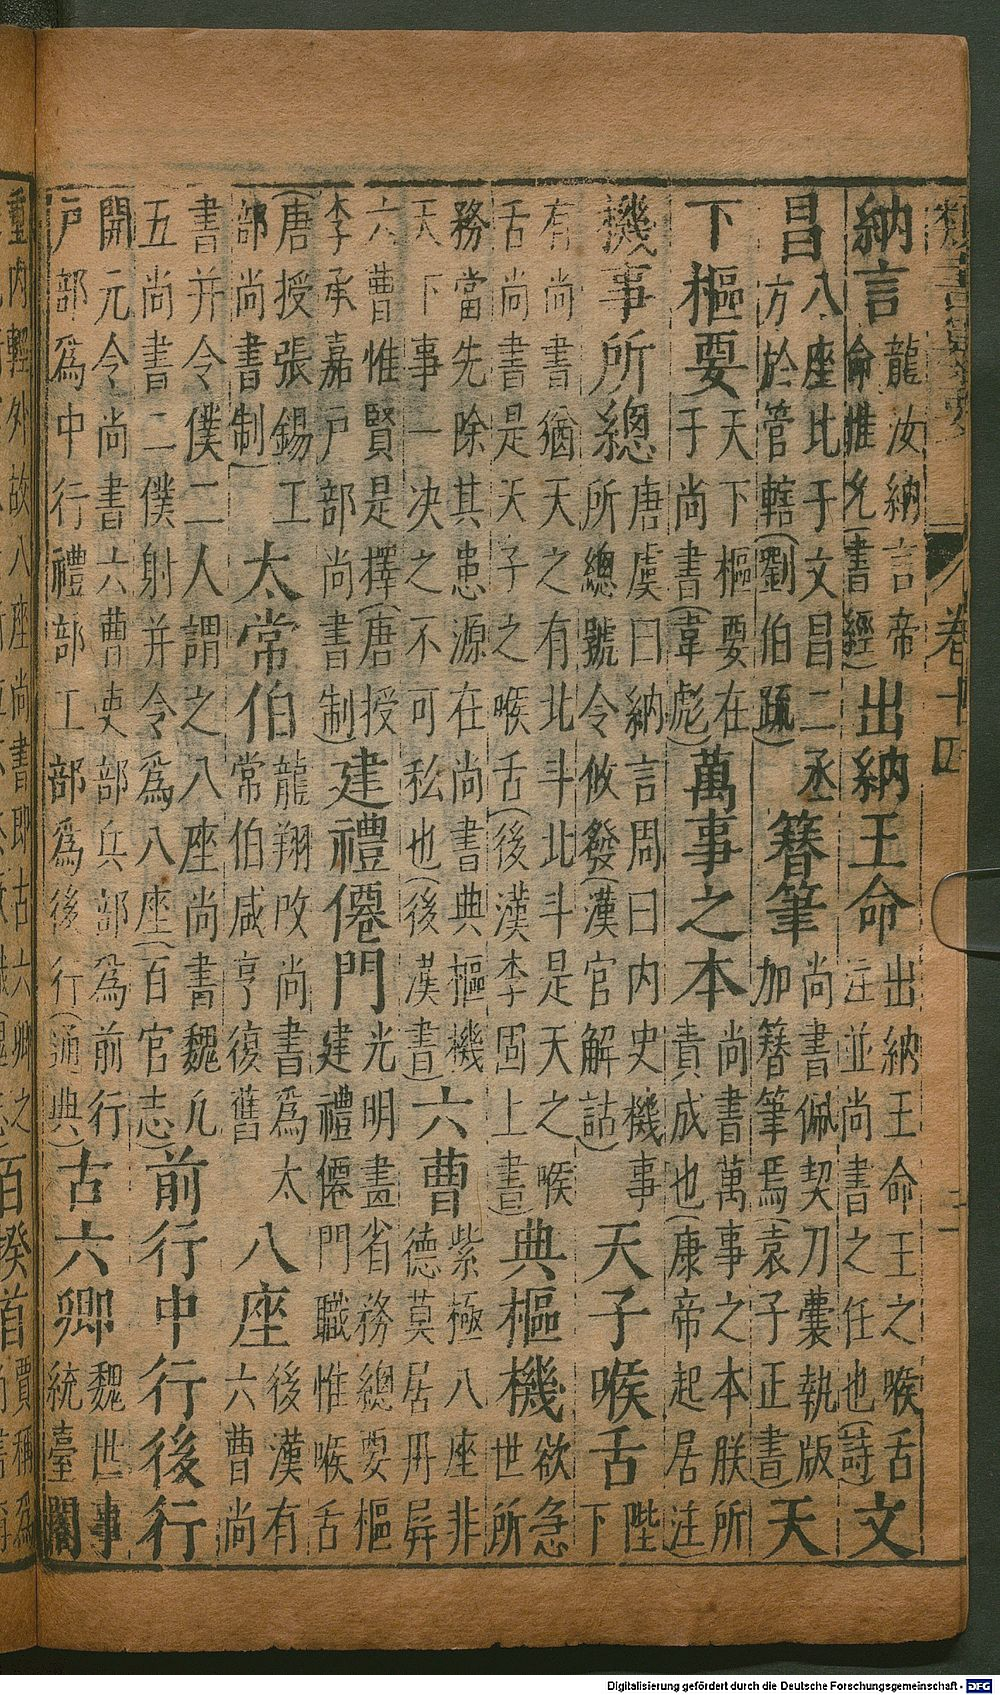 卷十四
納言龍汝納言帝命惟允(書經)出納王命出納王命王之喉舌注並尚書之任也(詩)文
昌八座比于文昌二丞方於管轄(劉伯踈)簪筆尚書佩契刀囊執版加簪筆焉(袁子正書)天
下樞要天下樞要在于尚書(韋彪)萬事之本尚書萬事之本朕所責成也(康帝起居注)
機事所總唐虞曰納言周曰内史機事所總號令攸發(漢官解詁)天子喉舌陛下
有尚書猶天之有北斗北斗是天之喉舌尚書是天子之喉舌(後漢李固上書)典樞機欲急世所
務當先除其患源在尚書典樞機天下事一决之不可私也(後漢書)六曹紫極八座非德莫居丹屏
六曹惟賢是擇(唐授李承嘉戸部尚書制)建禮僊門光明畫省務總要樞建禮僊門職惟喉舌
(唐授張錫工部尚書制)太常伯龍翔改尚書爲太常伯咸亨復舊八座後漢有六曹尚
書并令僕二人謂之八座尚書魏凡五尚書二僕射并令爲八座(百官志)前行中行後行
開元令尚書六曹吏部兵部爲前行戸部爲中行禮部工部爲後行(通典)古六卿魏世事統臺閣
重内輕外故八座尚書即古六卿之
Digitalisierung gefördert durch die Deutsche Forschungsgemeinschaft - DFG